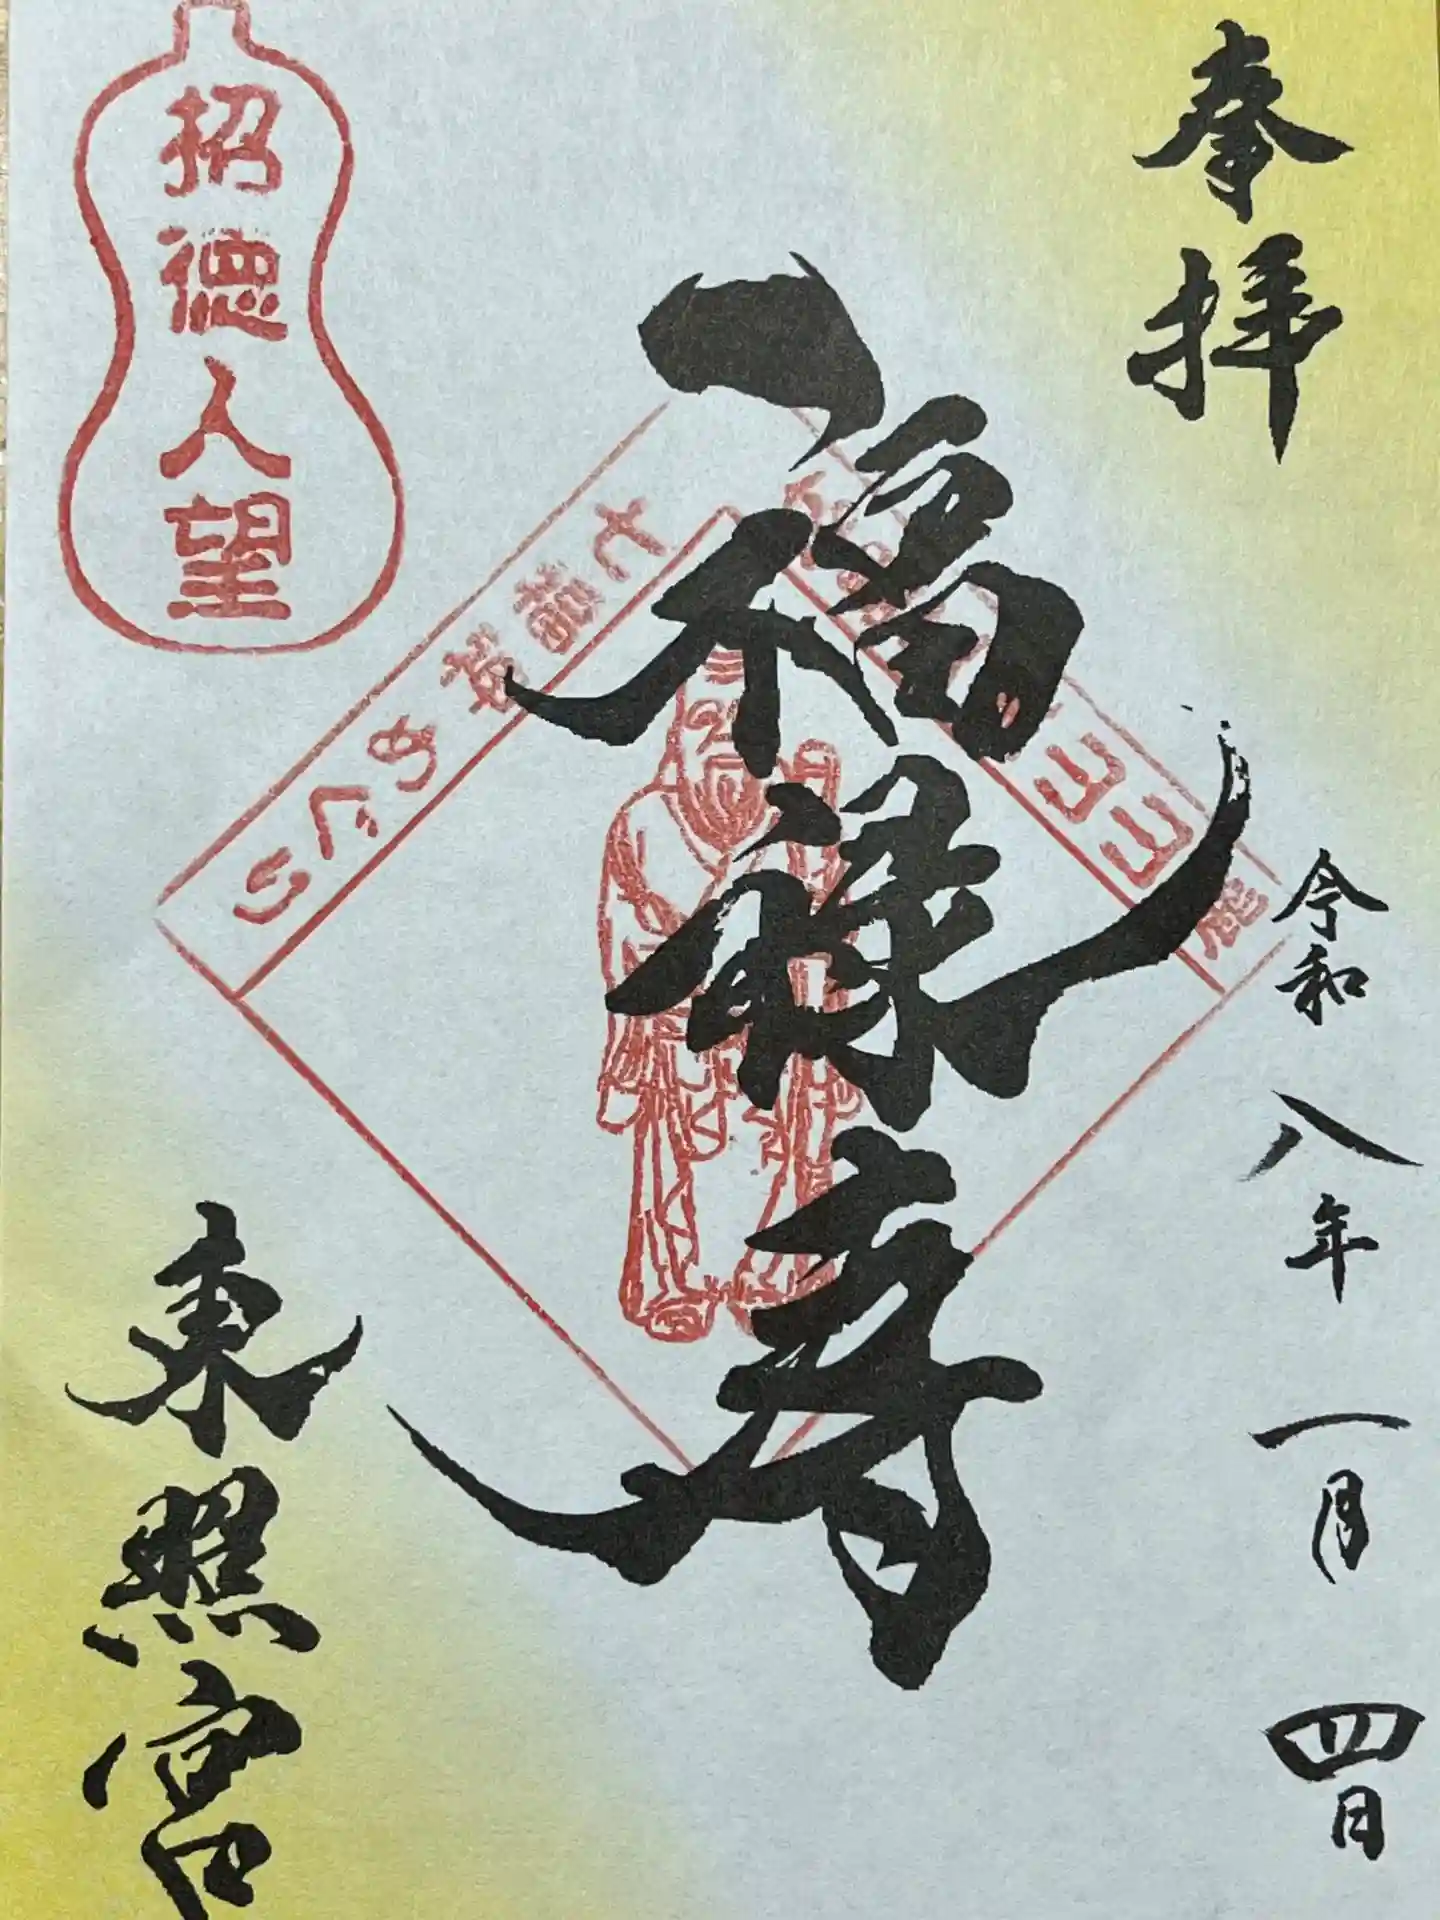 奉拝
令和八年一月四日
福禄寿
七福神めぐり
東照宮
招徳人望